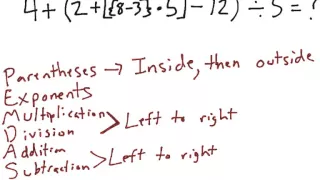 4+(2+[{8-3}·5]-12)÷5=?
Parentheses → Inside, then outside
Exponents
Multiplication
Division > Left to right
Addition
Subtraction > Left to right